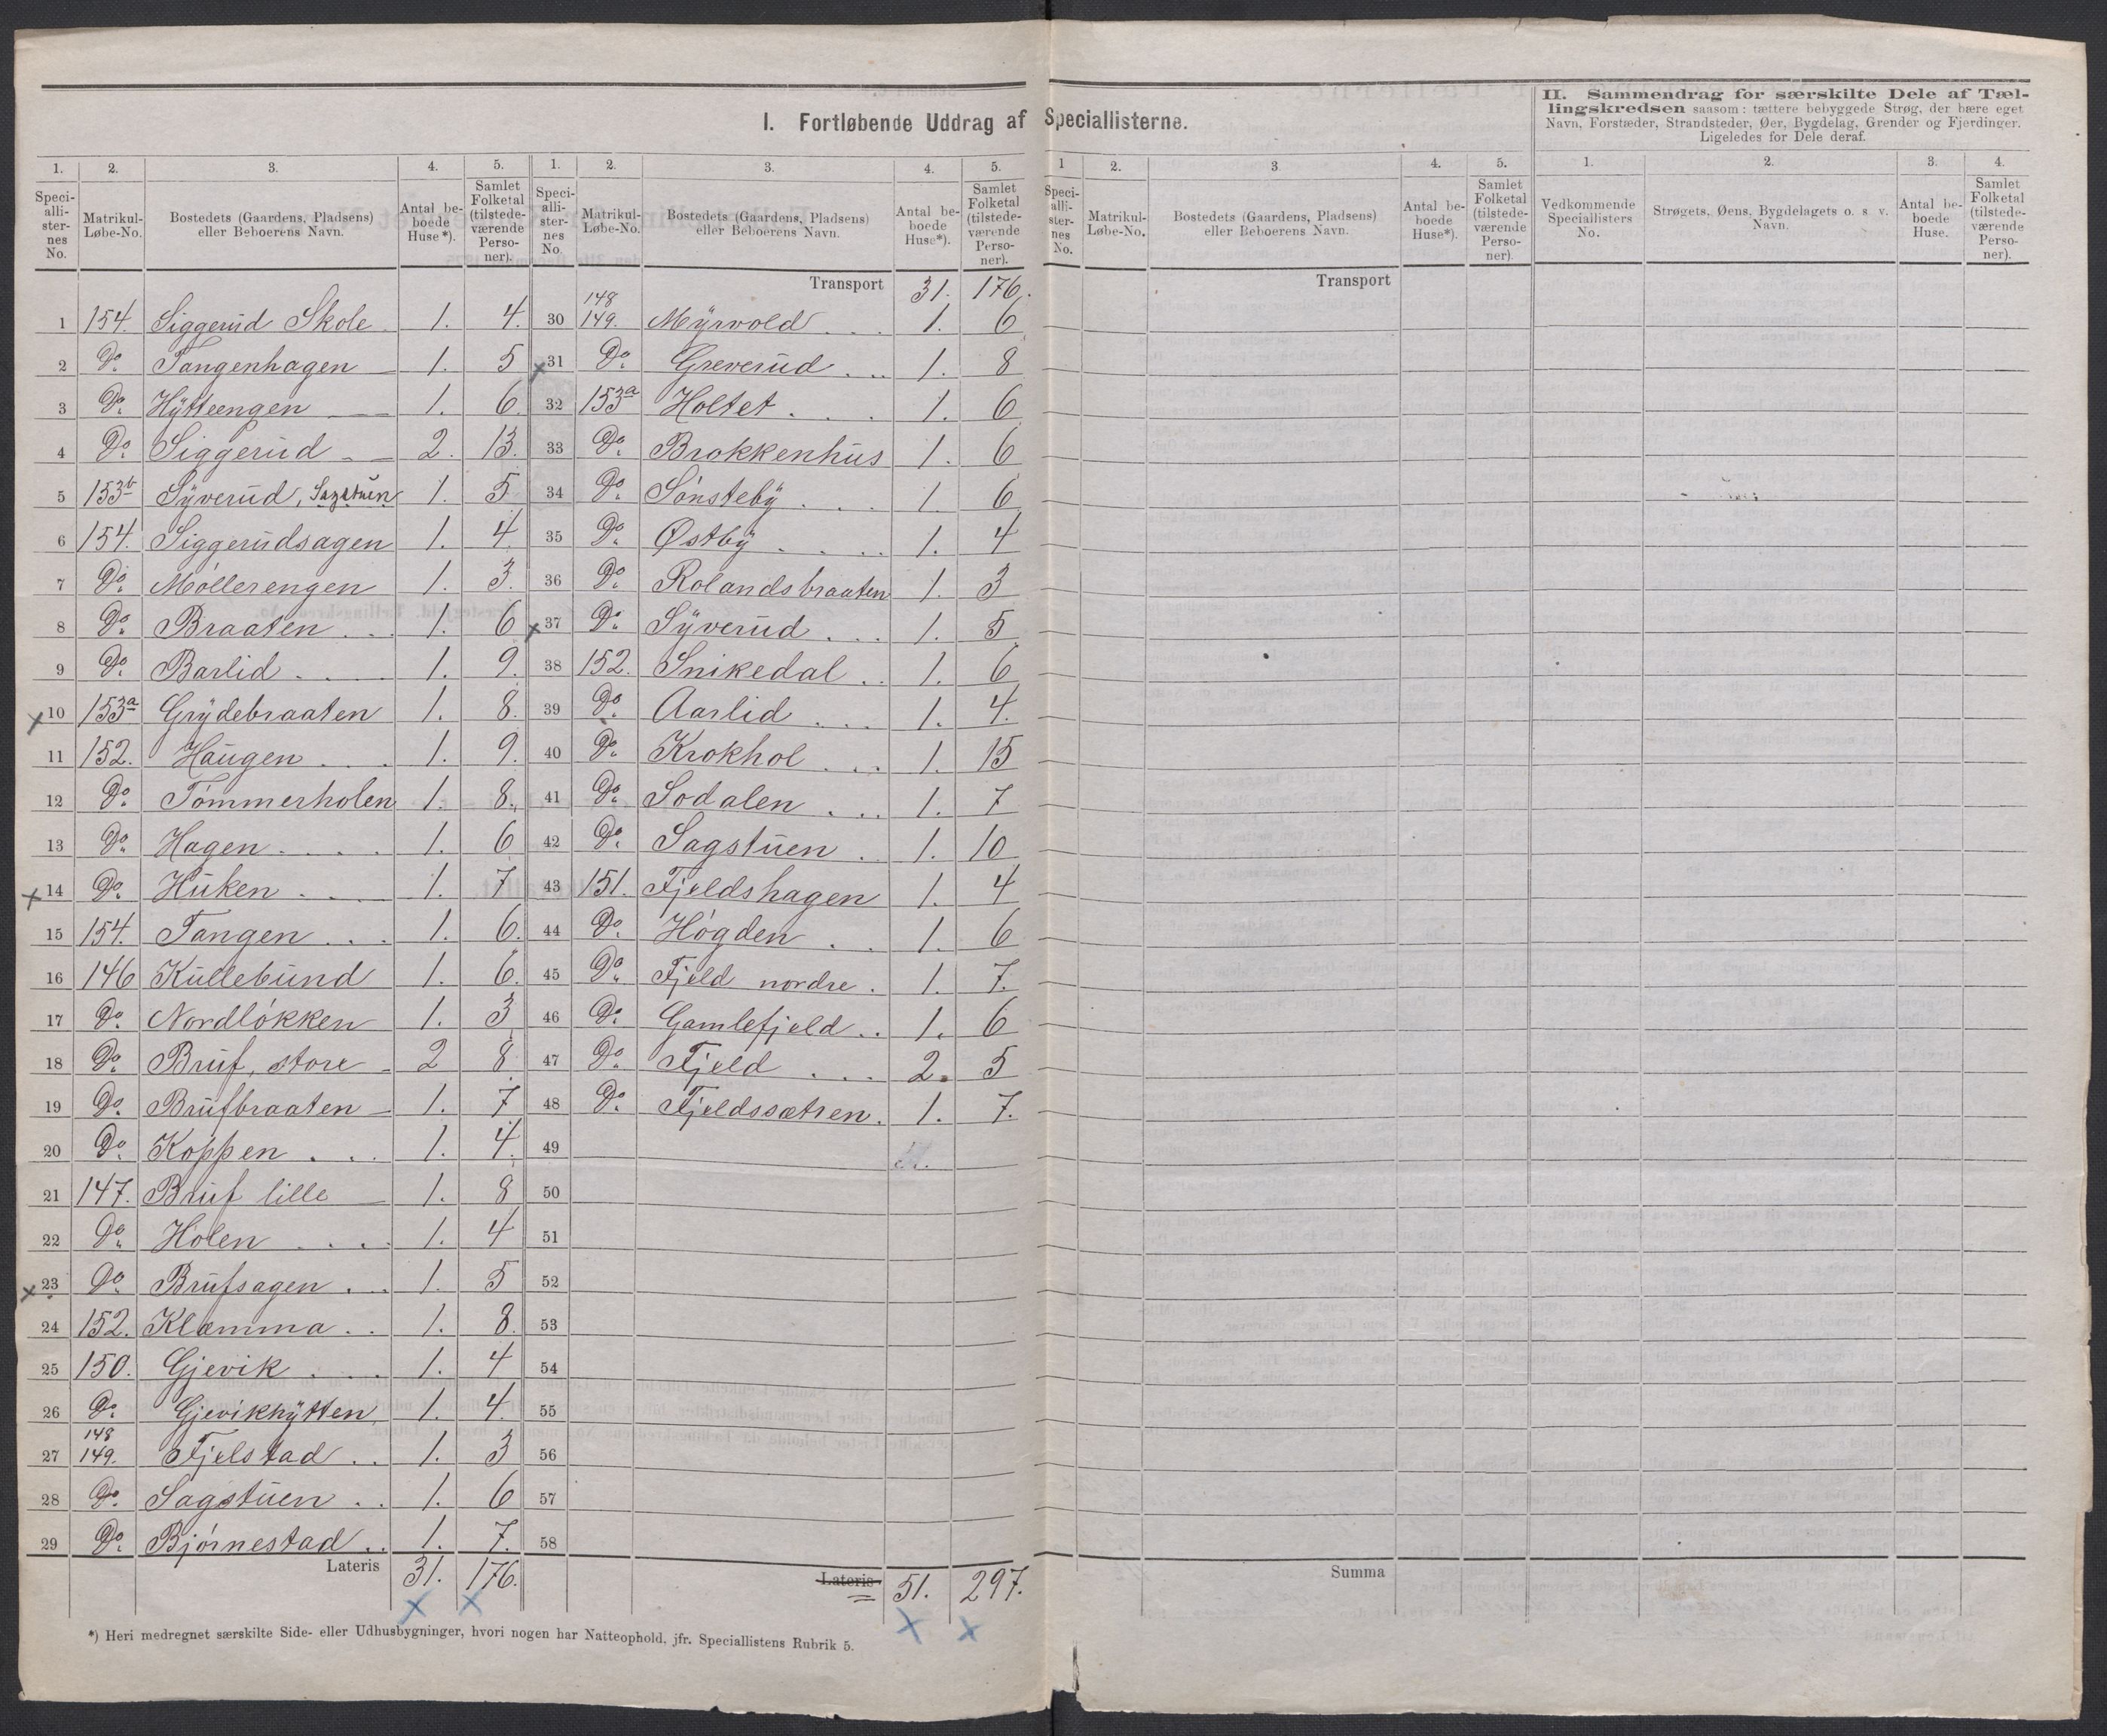 I. Fortløbende Uddrag af Speciallisterne.
II. Sammendrag for særskilte Dele af Tæl-
lingskredsen saasom: tættere bebyggede Strøg, der bære eget
Navn, Forstæder, Strandsteder, Øer, Bygdelag, Grender og Fjerdinger.
Ligeledes for Dele deraf.
1. 2. 3. 4. 5. 1. 2. 3. 4. 5. 1 2. 3 4. 5. 1. 2. 3. 4.
Speci-alli-ster-nes No. Matrikul-Løbe-No. Bostedets (Gaardens, Pladsens) eller Beboerens Navn. Antal be-boede Huse*). Samlet Folketal (tilstede-værende Perso-ner).
Speci-alli-ster-nes No. Matrikul-Løbe-No. Bostedets (Gaardens, Pladsens) eller Beboerens Navn. Antal be-boede Huse*). Samlet Folketal (tilstede-værende Perso-ner).
Speci-alli-ster-nes No. Matrikul-Løbe-No. Bostedets (Gaardens, Pladsens) eller Beboerens Navn. Antal be-boede Huse*). Samlet Folketal (tilstede-værende Perso-ner).
Vedkommende Speciallisters No. Strøgets, Øens, Bygdelagets o. s. v. Navn. Antal be-boede Huse. Samlet Folketal (tilstede-værende Perso-ner).
1 154. Siggerud Skole 1. 4.
2 Do. Tangenhagen 1. 5
3 Do. Hÿtteengen 1. 6.
4 Do. Siggerud 2. 13.
5 153b Sÿverud, Sagstuen 1. 5
6 154. Siggerudsagen 1. 4.
7 Do. Möllerengen 1. 3.
8 Do. Braaten 1. 6
9 Do. Barlid 1. 9.
x 10 153a Grÿdebraaten 1. 8.
11 152. Haugen 1. 9.
12 Do. Tömmerholen 1. 8.
13 Do. Hagen 1. 6
x 14 Do. Huken 1. 7
15 154. Tangen 1. 6.
16 146 Kullebund 1. 6.
17 Do. Nordlökken 1. 3
18 Do. Bruf, store 2 8
19 Do. Brufbraaten 1. 7
20 Do. Koppen 1. 4.
21 147. Bruf lille 1. 8
22 Do. Holen 1. 4
x 23 Do. Brufsagen 1. 5
24 152. Klæmma 1. 8.
25 150. Gjevik 1. 4
26 Do. Gjevikhÿtten 1. 4.
27 148 149. Fjelstad 1. 3
28 Do. Sagstuen 1. 6
29 Do. Björnestad 1. 7.
Lateris 31. 176.
x x
Transport 31. 176.
30 148 149. Mÿrvold 1. 6
x 31 Do. Greverud 1. 8
32 153a Holtet 1. 6
33 Do. Brokkenhus 1. 6
34 Do. Sönstebÿ 1. 6
35 Do. Østbÿ 1. 4
36 Do. Rolandsbraaten 1. 3
x 37 Do. Sÿverud 1. 5
38 152. Snikedal 1. 6
39 Do. Aarlid 1. 4.
40 Do. Krokhol 1. 15
41 Do. Sodalen 1. 7
42 Do. Sagstuen 1. 10
43 151. Fjeldshagen 1. 4
44 Do. Högden 1. 6
45 Do. Fjeld nordre 1. 7.
46 Do. Gamlefjeld 1. 6
47 Do. Fjeld 2. 5
48 Do. Fjeldssætren 1. 7.
49
50
51
52
53
54
55
56
57
58
Lateris 51. 297.
x x
Transport
Summa
*) Heri medregnet særskilte Side- eller Udhusbygninger, hvori nogen har Natteophold, jfr. Speciallistens Rubrik 5.